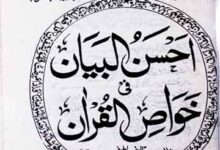 احسن البیان
فی
خواص القرآن